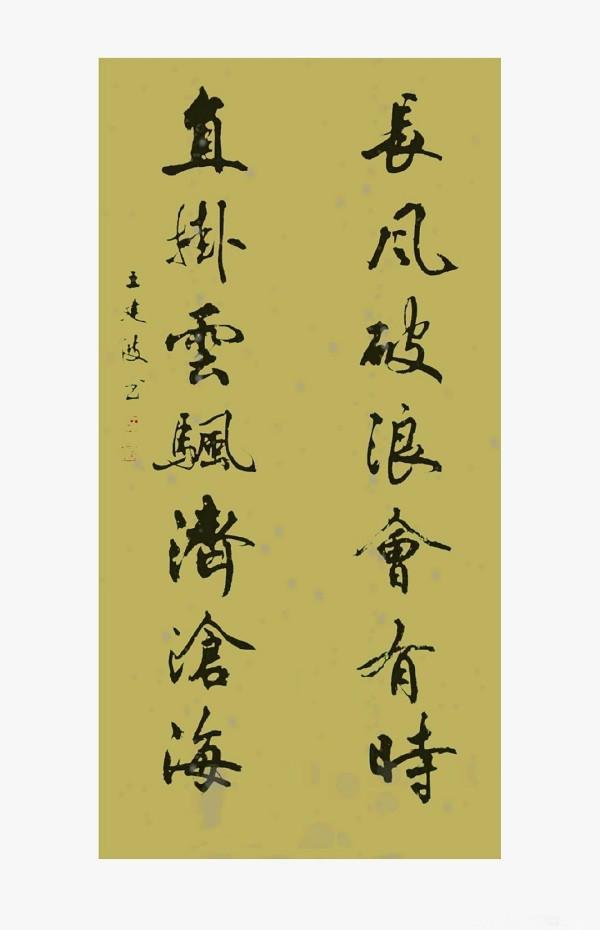 長風破浪會有時
直掛雲颿濟滄海
王建波书